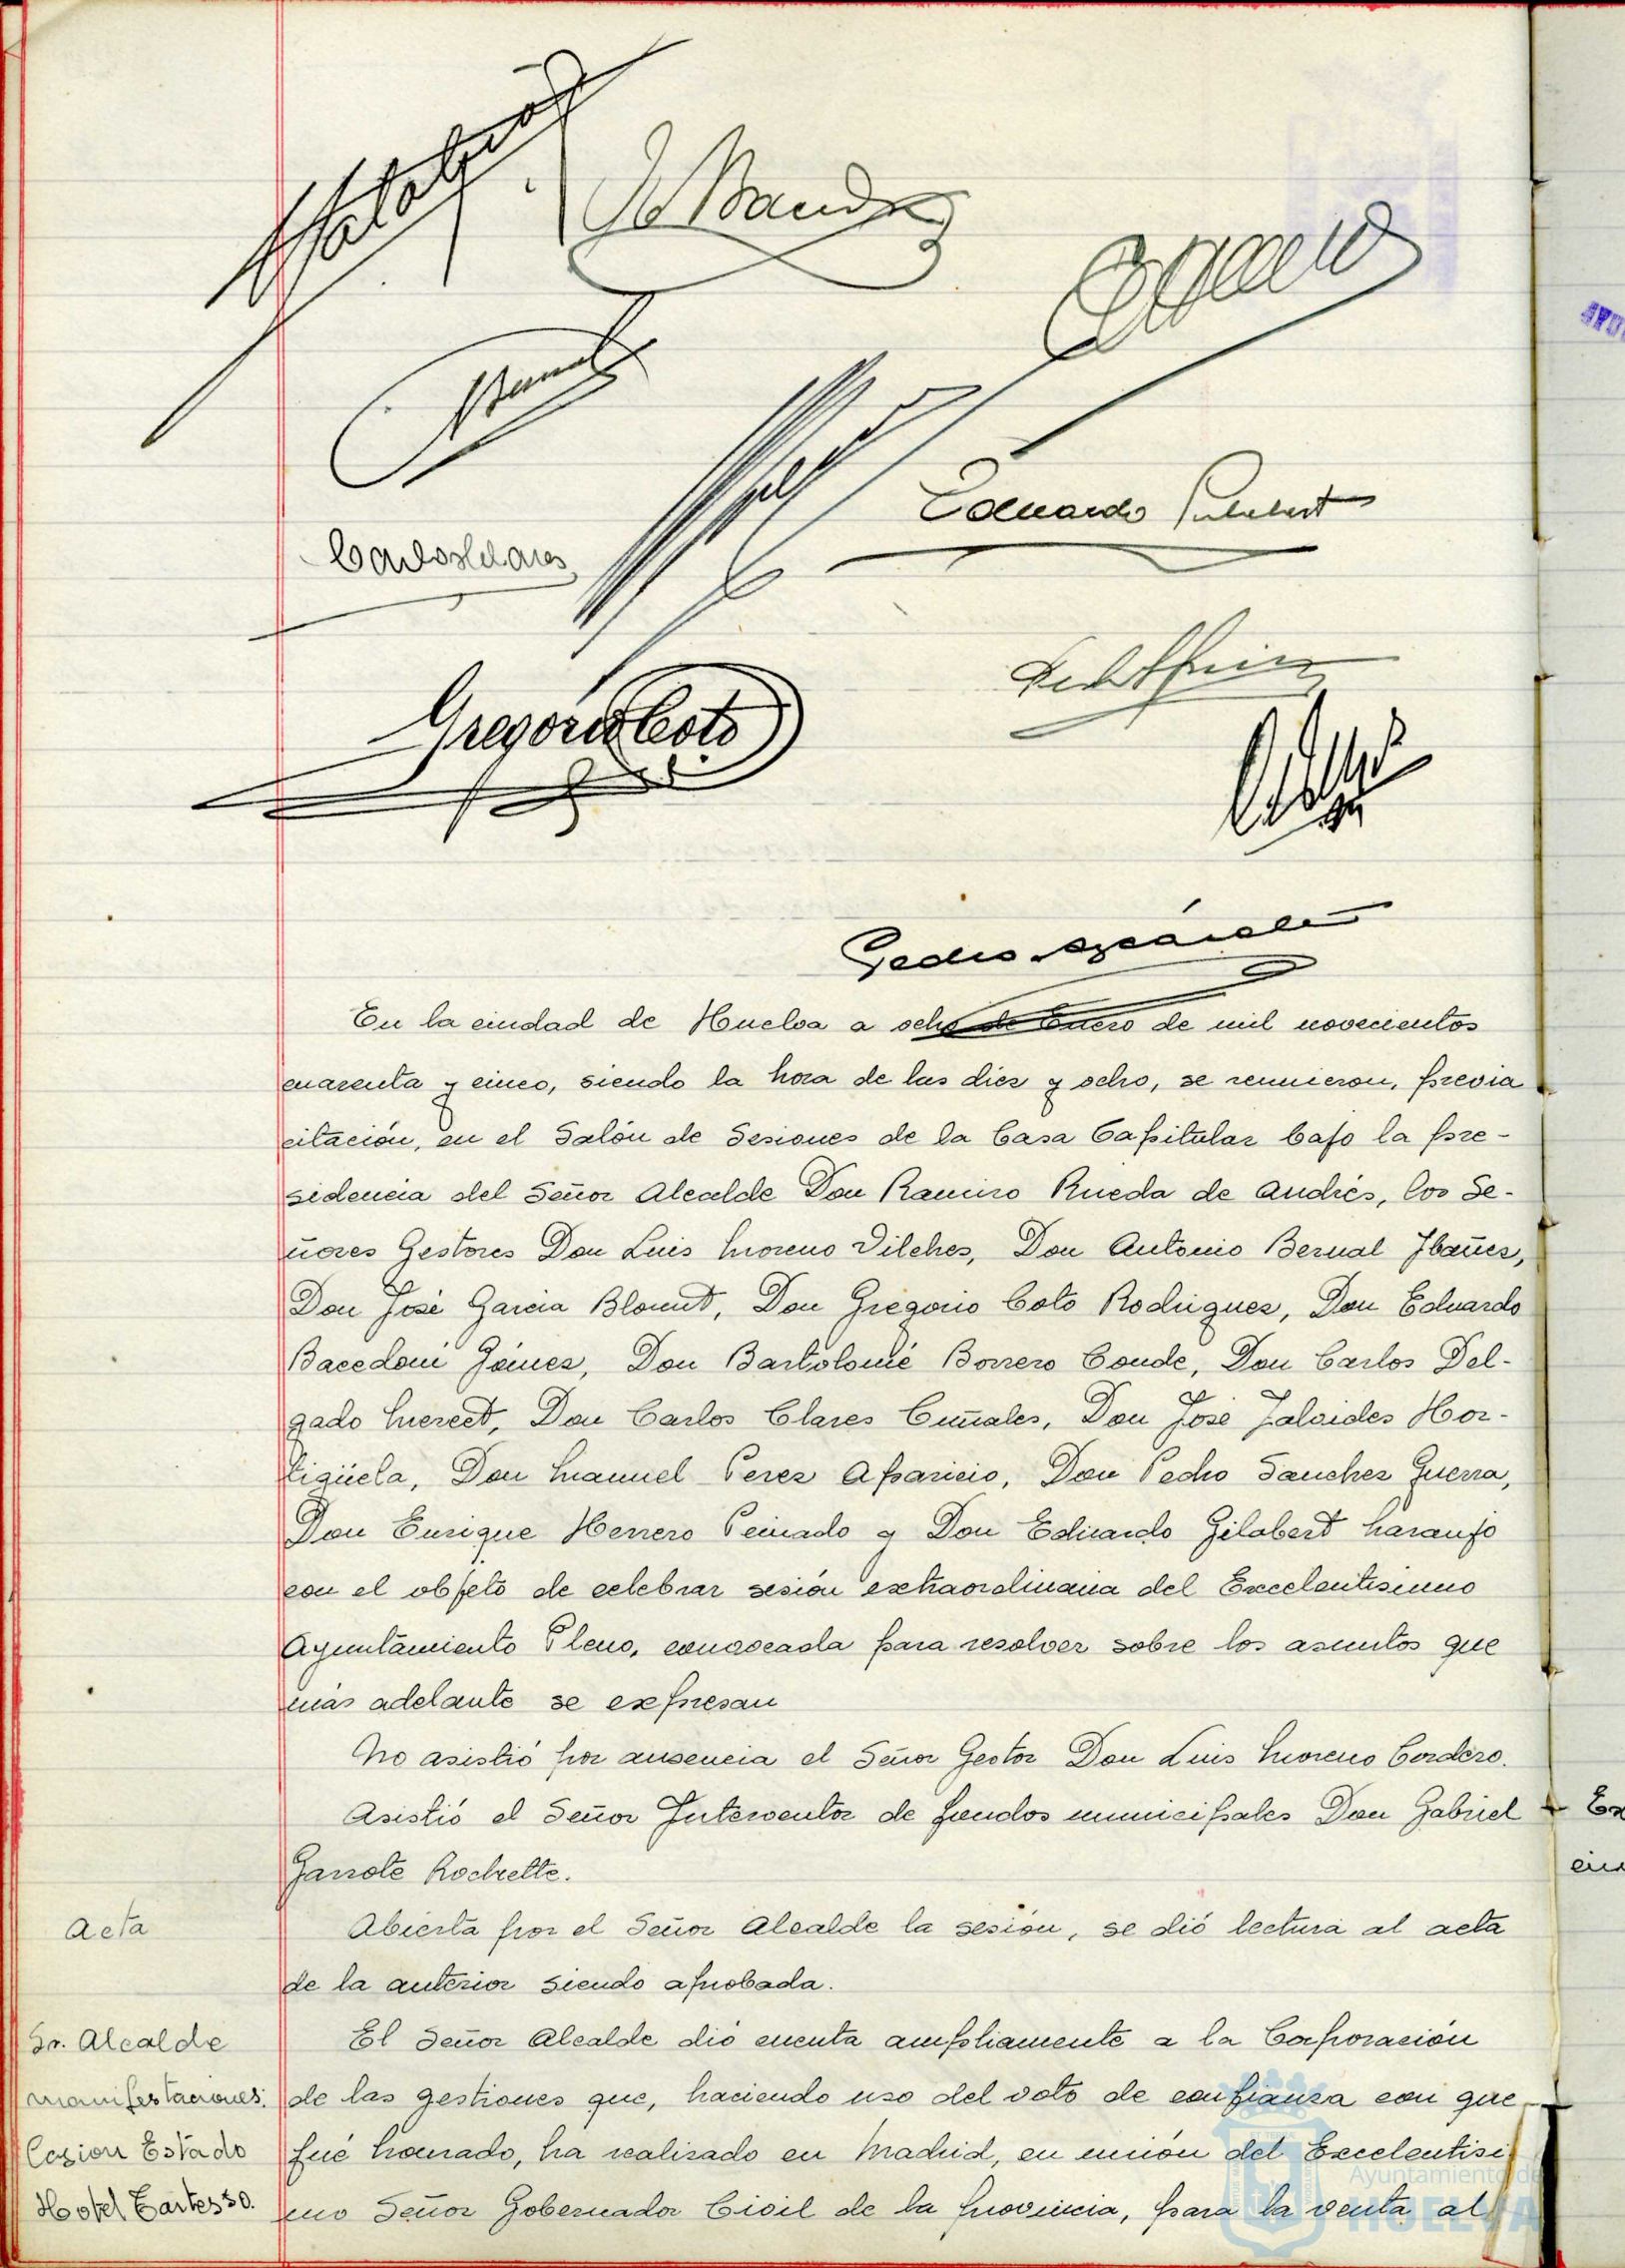 Eduardo Gilabert
Carlos Clares
Gregorio Coto
En la ciudad de Huelva a ocho de Enero de mil novecientos
cuarenta y cinco, siendo la hora de las diez y ocho, se reunieron, previa
citación, en el Salón de Sesiones de la Casa Capitular bajo la pre-
sidencia del Señor Alcalde Don Ramiro Rueda de Andrés, los Se-
ñores Gestores Don Luis Moreno Vilches, Don Antonio Bernal Ibañez,
Don José Garcia Blount, Don Gregorio Coto Rodriguez, Don Eduardo
Bacedoni Gómez, Don Bartolomé Borrero Conde, Don Carlos Del-
gado Merect, Don Carlos Clares Cumales, Don José Jalvides Hor-
tigüela, Don Manuel Perez Aparicio, Don Pedro Sanchez Guerra,
Don Enrique Herrero Peinado y Don Eduardo Gilabert Naranjo
con el objeto de celebrar sesión extraordinaria del Excelentisimo
Ayuntamiento Pleno, convocada para resolver sobre los asuntos que
más adelante se expresan
No asistió por ausencia el Señor Gestor Don Luis Moreno Cordero.
Asistió el Señor Interventor de fondos municipales Don Gabriel
Garrote Rochette.
Acta
Abierta por el Señor Alcalde la sesión, se dió lectura al acta
de la anterior siendo aprobada.
Sr. Alcalde
manifestaciones.
Cesion Estado
Hotel Tartesso.
El Señor Alcalde dió cuenta ampliamente a la Corporación
de las gestiones que, haciendo uso del voto de confianza con que
fué honrado, ha realizado en Madrid, en unión del Excelentisi
mo Señor Gobernador Civil de la provincia, para la venta al
Ayuntamiento de
HUELVA